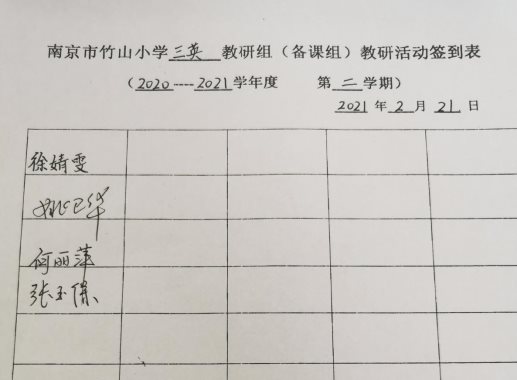 南京市竹山小学三英教研组（备课组）教研活动签到表
（2020----2021学年度 第二学期）
2021年2月21日
徐婧雯
姚卫华
何丽萍
张玉保